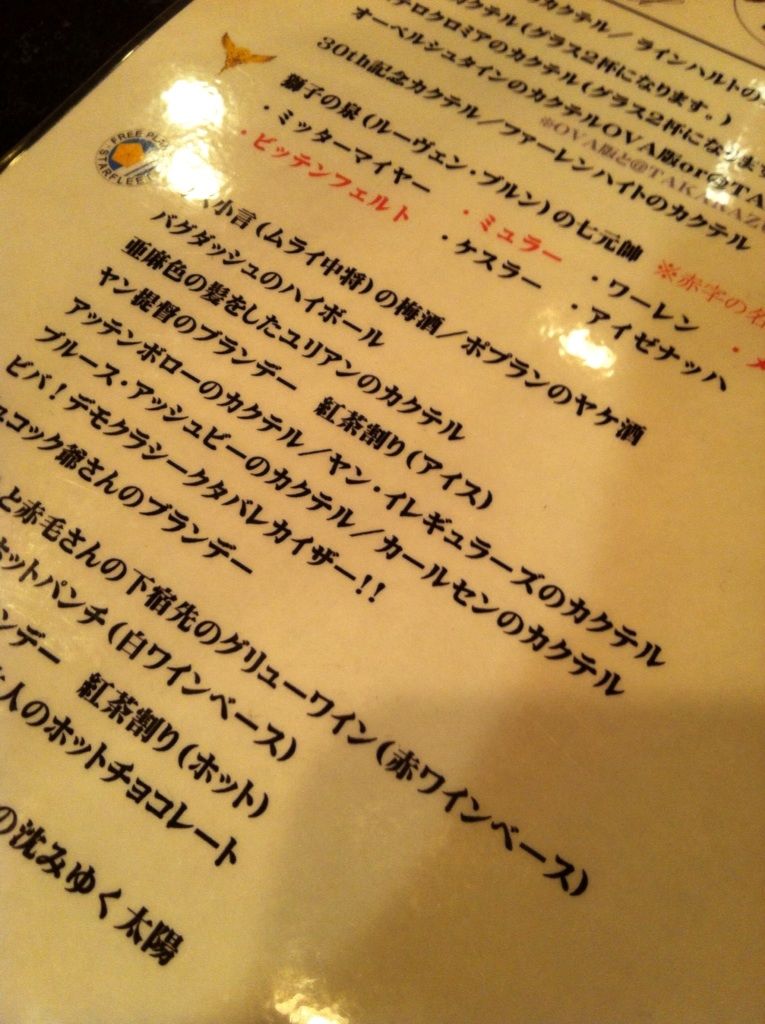 カクテル／ラインハルトの
カクテル(グラス2杯になります。)
テロクロミアのカクテル(グラス2杯になります
オーベルシュタインのカクテルOVA版or@TA
※OVA版と@TAKARAZ
30th記念カクテル／ファーレンハイトのカクテル
獅子の泉(ルーヴェン・ブルン)の七元帥 ※赤字の名
・ミッターマイヤー ・ミュラー ・ワーレン
・ビッテンフェルト ・ケスラー ・アイゼナッハ
FREE PLA
STARFLEET
小言(ムライ中将)の梅酒／ポプランのヤケ酒
バグダッシュのハイボール
亜麻色の髪をしたユリアンのカクテル
ヤン提督のブランデー 紅茶割り(アイス)
アッテンボローのカクテル／ヤン・イレギュラーズのカクテル
ブルース・アッシュビーのカクテル／カールセンのカクテル
ビバ！デモクラシークタバレカイザー!!
コック爺さんのブランデー
と赤毛さんの下宿先のグリューワイン(赤ワインベース)
ホットパンチ(白ワインベース)
ンデー 紅茶割り(ホット)
人のホットチョコレート
の沈みゆく太陽